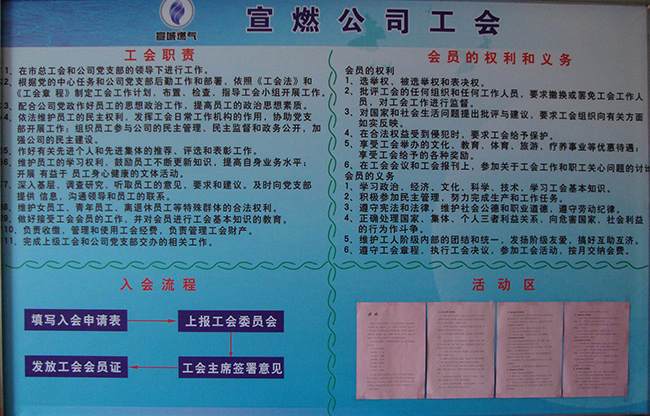 宣城燃气
宣燃公司工会
工会职责
1、在市总工会和公司党支部的领导下进行工作。
2、根据党的中心任务和公司党支部后勤工作和部署，依照《工会法》和
《工会章 程》制定工会工作计划，布置、检查、指导工会小组开展工作。
3、配合公司党政作好员工的思想政治工作，提高员工的政治思想素质。
4、依法维护员工的民主权利，发挥工会日常工作机构的作用，协助党支
部开展工作；组织员工参与公司的民主管理、民主监督和政务公开，加
强公司的民主建设。
5、作好有关先进个人和先进集体的推荐、评选和表彰工作。
6、维护员工的学习权利，鼓励员工不断更新知识，提高自身业务水平；
开展 有益于 员工身心健康的文体活动。
7、深入基层，调查研究，听取员工的意见、要求和建议，及时向党支部
提供 信息，沟通领导和员工的联系。
8、维护女员工，青年员工， 离退休员工等特殊群体的合法权利。
9、做好接受工会会员的工作，并对会员进行工会基本知识的教育。
10、负责收缴，管理和使用工会经费，负责管理工会财产。
11、完成上级工会和公司党支部交办的相关工作。
会员的权利和义务
会员的权利
1、选举权、被选举权和表决权。
2、批评工会的任何组织和任何工作人员，要求撤换或罢免工会工作人
员，对工会工作进行监督。
3、对国家和社会生活问题提出批评与建议，要求工会组织向有关方面
如实反映。
4、在合法权益受到侵犯时，要求工会给予保护。
5、享受工会举办的文化、教育、体育、旅游、疗养事业等优惠待遇；
享受工会给予的各种奖励。
6、在工会会议和工会报刊上，参加关于工会工作和职工关心问题的讨论
会员的义务
1、学习政治，经济，文化，科学，技术，学习工会基本知识。
2、积极参加民主管理，努力完成生产和工作任务。
3、遵守宪法和法律，维护社会公德和职业道德，遵守劳动纪律。
4、正确处理国家、集体、个人三者利益关系，向危害国家、社会利益
的行为作斗争。
5、维护工人阶级内部的团结和统一，发扬阶级友爱，搞好互助互济。
6、遵守工会章程，执行工会决议，参加工会活动，按月交纳会费。
入会流程
填写入会申请表
上报工会委员会
发放工会会员证
工会主席签署意见
活动区